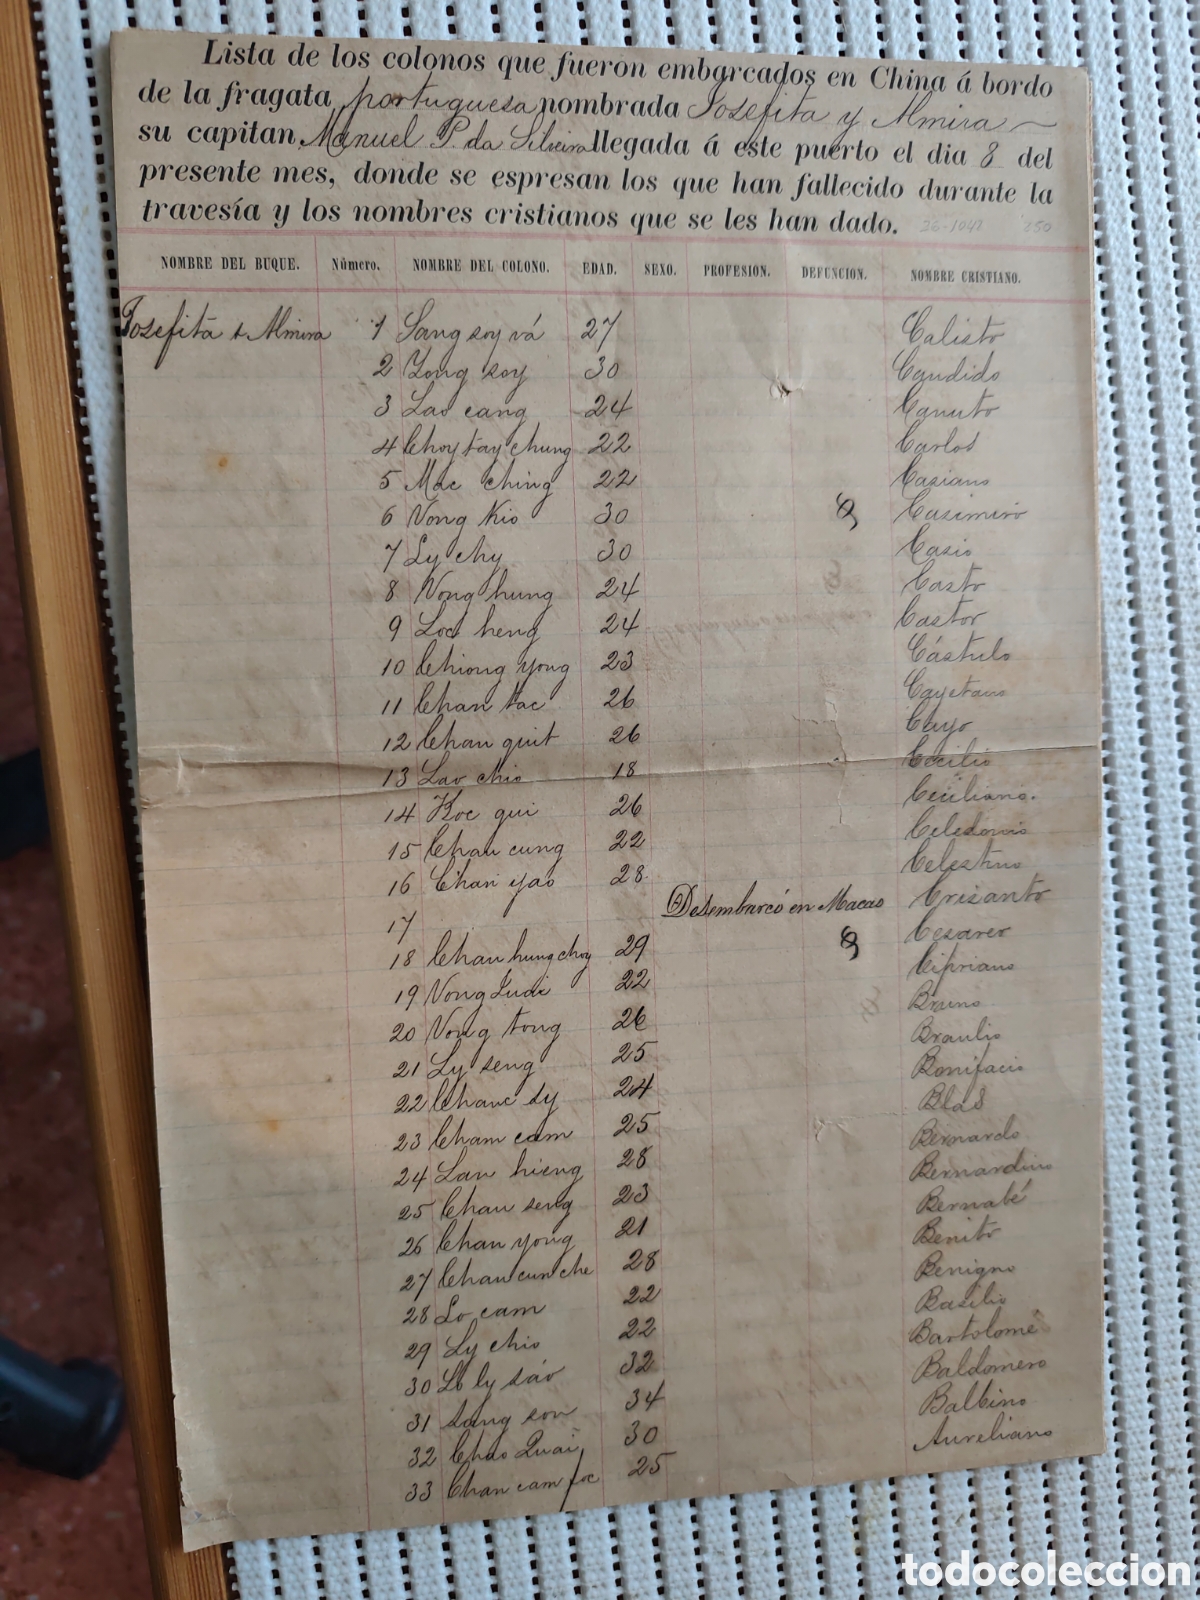 Lista de los colonos que fueron embarcados en China á bordo
de la fragata portuguesa nombrada Josefita y Almira
su capitan Manuel P. da Silveira llegada á este puerto el dia 8 del
presente mes, donde se espresan los que han fallecido durante la
travesía y los nombres cristianos que se les han dado.
NOMBRE DEL BUQUE. Número. NOMBRE DEL COLONO. EDAD. SEXO. PROFESION. DEFUNCION. NOMBRE CRISTIANO.
Josefita y Almira 1 Sang soy vá 27 Calisto
2 Yong soy 30 Candido
3 Lao cang 24 Canuto
4 Choy tay chung 22 Carlos
5 Mac ching 22 Casiano
6 Vong Kio 30 Casimiro
7 Ly chy 30 Casio
8 Vong hung 24 Casto
9 Loc heng 24 Castor
10 Chiong yong 23 Cástulo
11 Chan tac 26 Cayetano
12 Chan quit 26 Cayo
13 Lao chio 18 Cecilio
14 Koc qui 26 Ceciliano.
15 Chan cung 22 Celedonio
16 Chan yao 28 Celestino
17 Desembarcó en Macao Crisanto
18 Chan hung choy 29 Cesareo
19 Vong 22 Cipriano
20 Vong tong 26 Bruno
21 Ly seng 25 Braulio
22 sy 24 Bonifacio
23 Cham cam 25 Blas
24 Lan hieng 28 Bernardo
25 Chan seng 23 Bernardino
26 Chan yong 21 Bernabé
27 Chan cun che 28 Benito
28 Lo cam 22 Benigno
29 Ly chio 22 Basilio
30 Lo ly sáo 32 Bartolomé
31 Sang son 34 Baldomero
32 Chao Quai 30 Balbino
33 Chan cam foc 25 Aureliano
todocoleccion